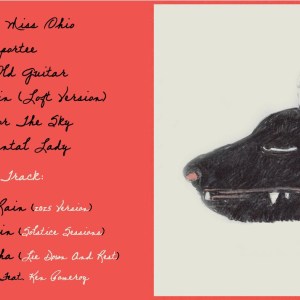 Miss Ohio
Old Guitar
(Loft Version)
The Sky
Lady
Track:
Rain (2025 Version)
(Solstice Sessions)
(Lie Down And Rest)
Feat. Ken Pomeroy